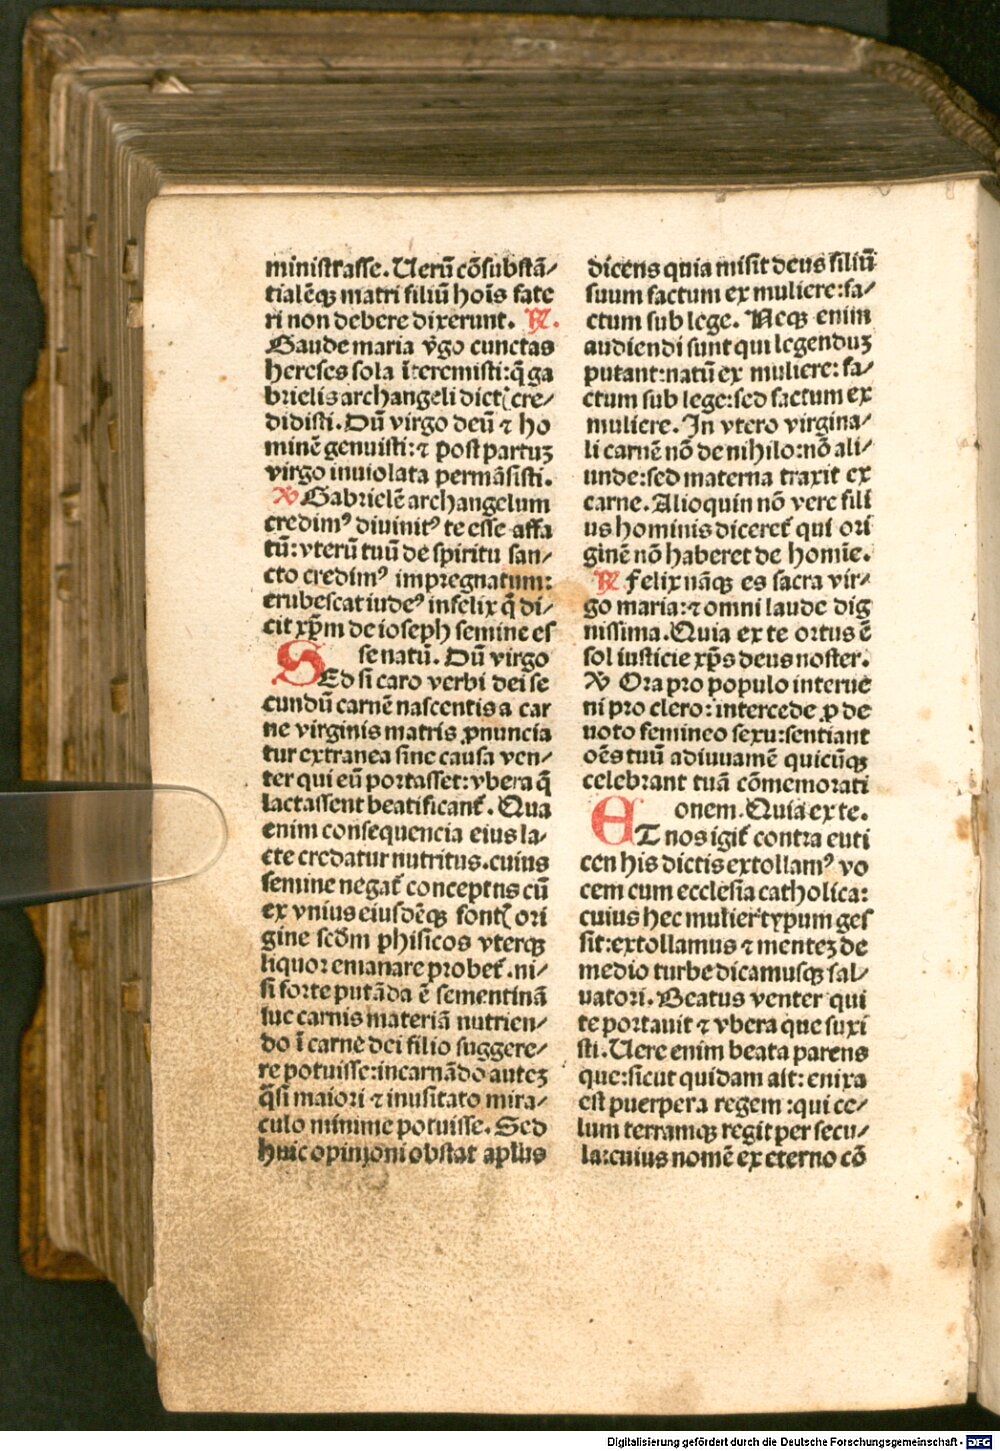 ministrasse. Uerũ cõsubstã/
tialẽqꝫ matri filiũ hoĩs fate
ri non debere dixerunt. ℟.
Gaude maria v̾go cunctas
hereses sola ĩteremisti: q̃ ga
brielis archangeli dictꝭ cre/
didisti. Dũ virgo deũ ⁊ ho
minẽ genuisti: ⁊ post partuꝫ
virgo inuiolata permãsisti.
℣ Gabrielẽ archangelum
credimꝰ diuinitꝰ te esse affa
tũ: vterũ tuũ de spiritu san/
cto credimꝰ impregnatum:
erubescat iudeꝰ infelix q̃ di/
cit xp̃m de ioseph semine es
se natũ. Dũ virgo
SEd si caro verbi dei se
cundũ carnẽ nascentis a car
ne virginis matris ꝓnuncia
tur extranea sine causa ven/
ter qui eũ portasset: vbera q̃
lactassent beatificant᷑. Qua
enim consequencia eius la/
cte credatur nutritus. cuius
semine negat᷑ conceptus cũ
ex vnius eiusdẽqꝫ fontꝭ ori
gine scd̃m phisicos vterqꝫ
liquor emanare probet᷑. ni/
si forte putãda ẽ sementinã
luc carnis materiã nutrien/
do ĩ carne dei filio suggere/
re potuisse: incarnãdo auteꝫ
q̃si maiori ⁊ inusitato mira/
culo minime potuisse. Sed
huic opinioni obstat apl̃us
dicens quia misit deus filiũ
suum factum ex muliere: fa/
ctum sub lege. Necqꝫ enim
audiendi sunt qui legenduꝫ
putant: natũ ex muliere: fa/
ctum sub lege: sed factum ex
muliere. In vtero virgina/
li carnẽ nõ de nihilo: nõ ali/
unde: sed materna traxit ex
carne. Alioquin nõ vere fili
us hominis diceret᷑ qui ori
ginẽ nõ haberet de homĩe.
℟ Felix nãqꝫ es sacra vir/
go maria: ⁊ omni laude dig
nissima. Quia ex te ortus ẽ
sol iusticie xp̃s deus noster.
℣ Ora pro populo interue
ni pro clero: intercede ꝓ de
uoto femineo sexu: sentiant
oẽs tuũ adiuuamẽ quicũqꝫ
celebrant tuã cõmemorati
onem. Quia ex te.
ET nos igit᷑ contra euti
cen his dictis extollamꝰ vo
cem cum ecclesia catholica:
cuius hec mulier typum ges
sit: extollamus ⁊ menteꝫ de
medio turbe dicamusqꝫ sal/
uatori. Beatus venter qui
te portauit ⁊ vbera que suxi
sti. Uere enim beata parens
que: sicut quidam ait: enixa
est puerpera regem: qui ce/
lum terramqꝫ regit per secu/
la: cuius nomẽ ex eterno cõ
Digitalisierung gefördert durch die Deutsche Forschungsgemeinschaft - DFG